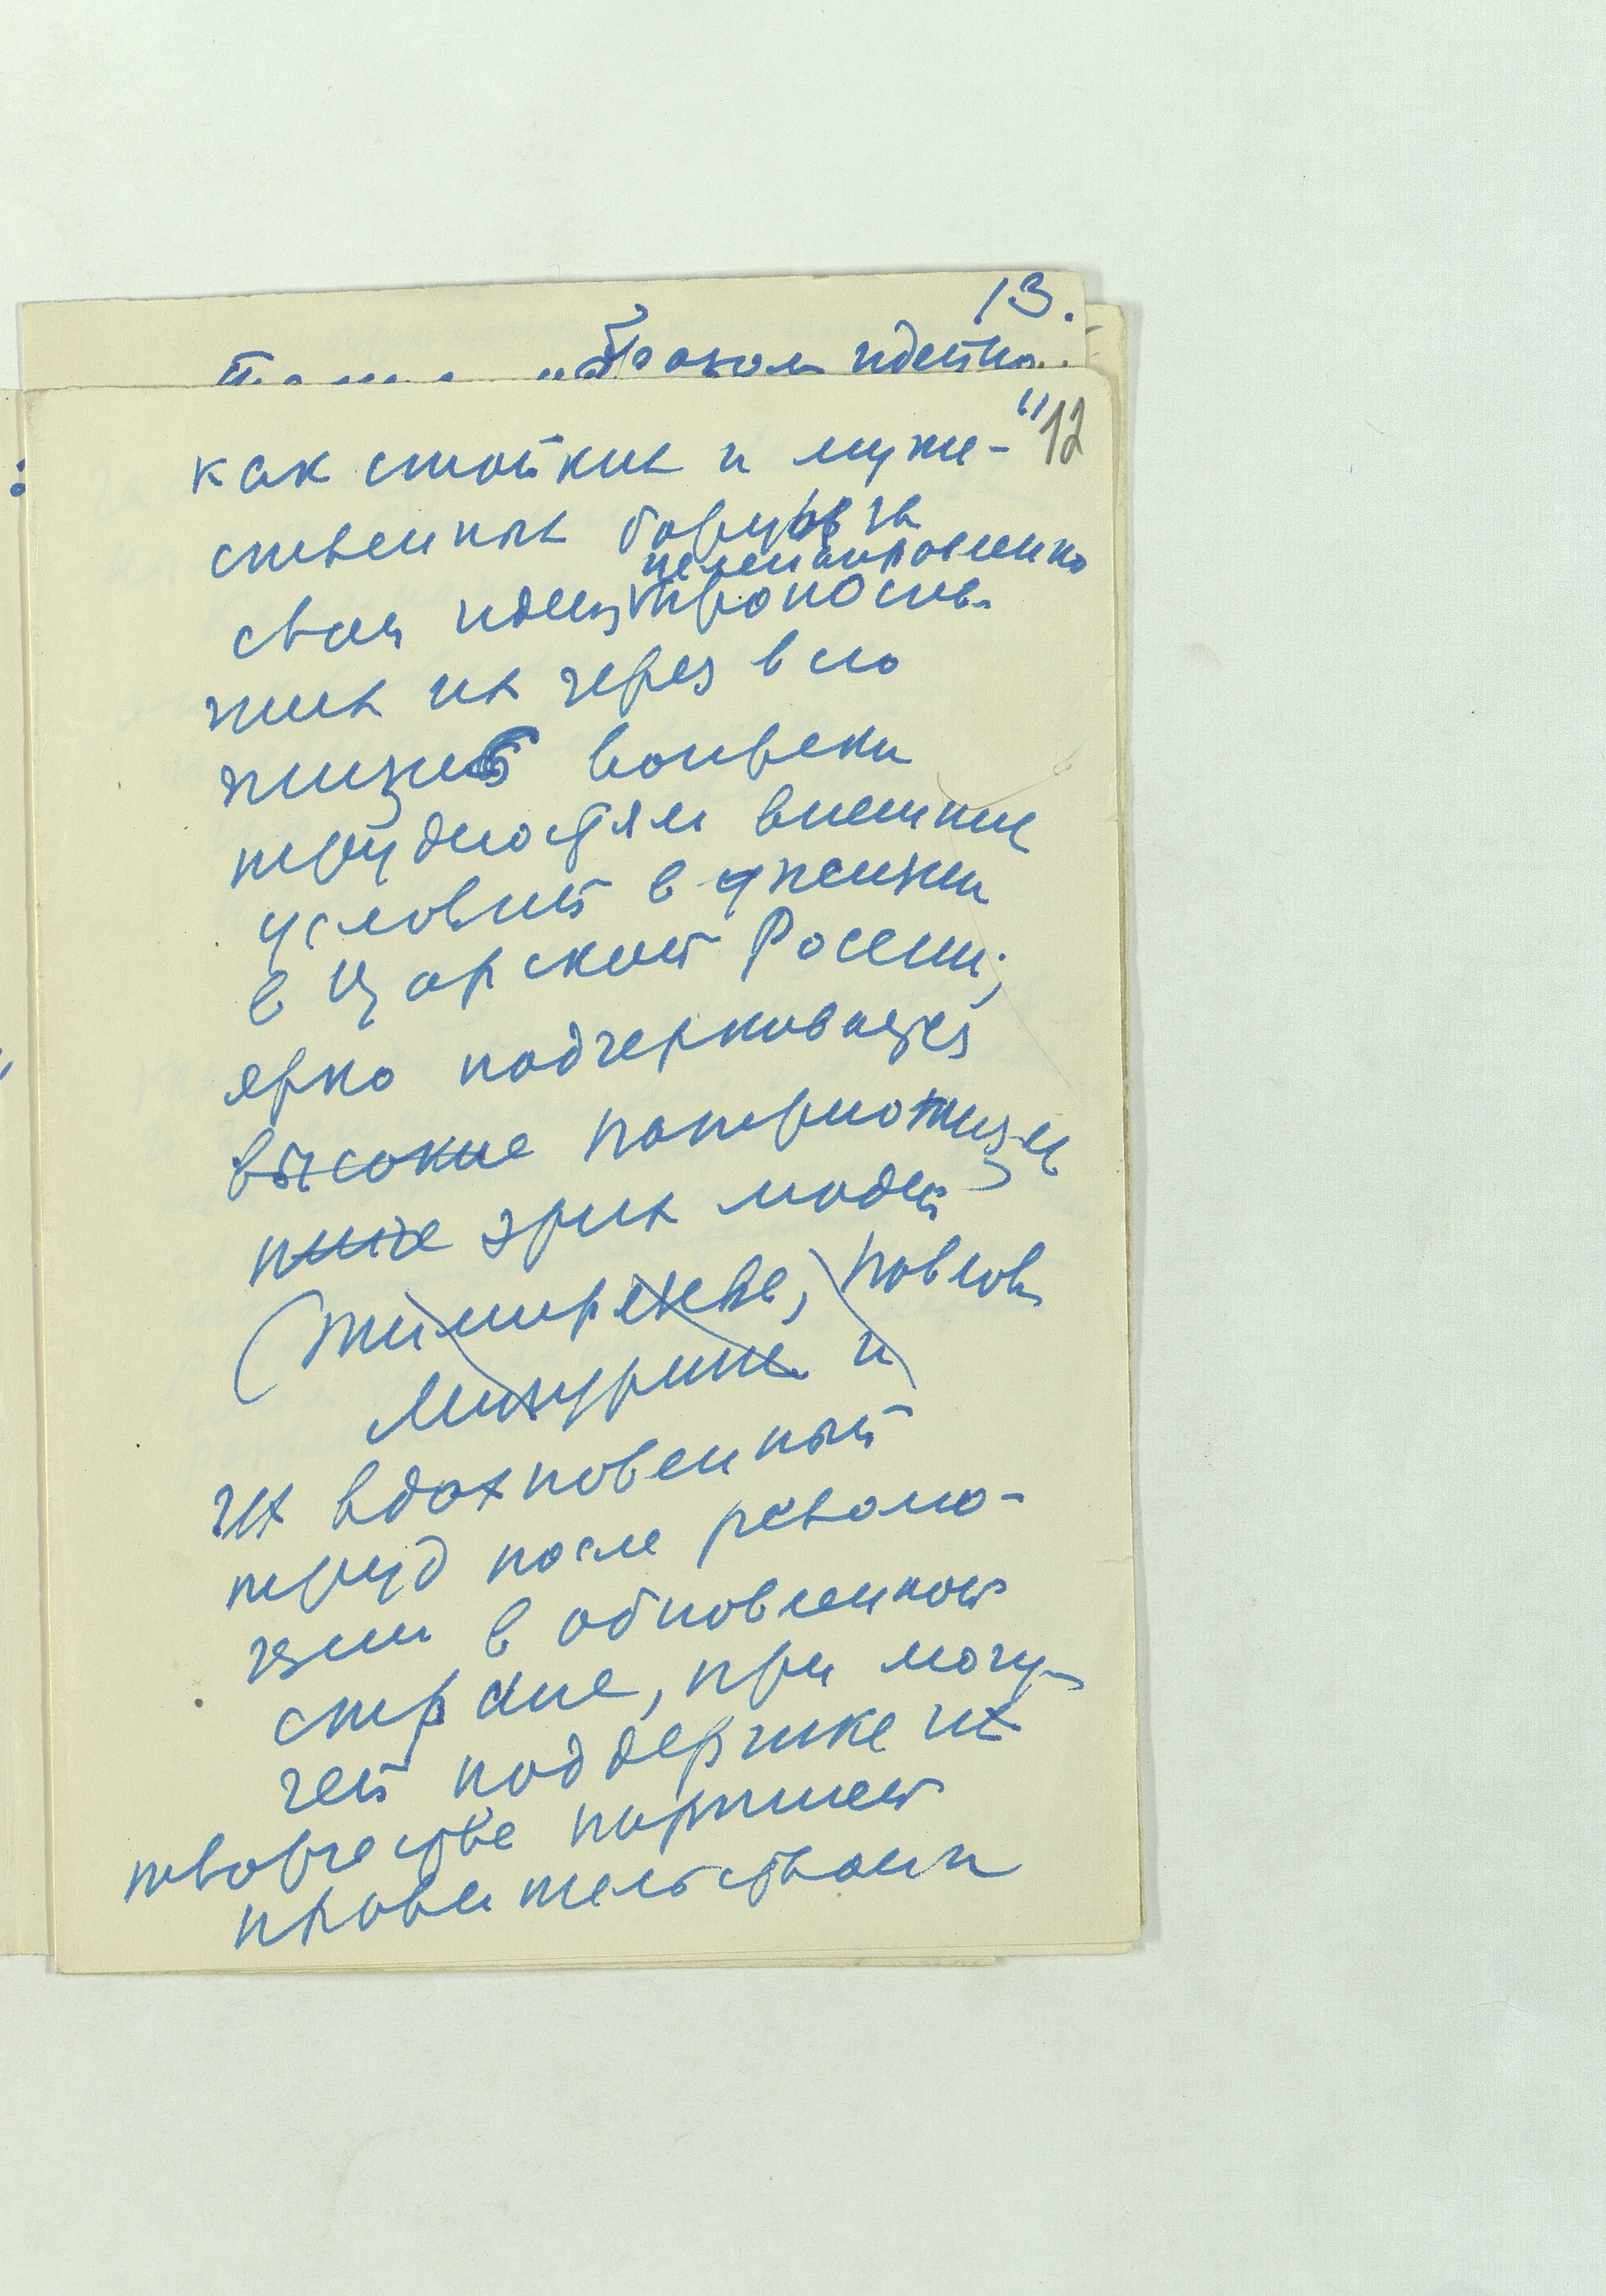 13.
образом идейно
12
как стойких и муже-
ственных борцов за
целенаправленно
свои идеи, пронося-
щих их через всю
жизнь вопреки
трудностям внешних
условий в жизни
в Царской России;
ярко подчеркивается
высокие патриотизм
этих людей
(Тимирязева, Павлова
Мичурина и
их вдохновенный
труд после револю-
ции в обновленной
стране, при могу-
чей поддержке их
творчества партией
правительством и